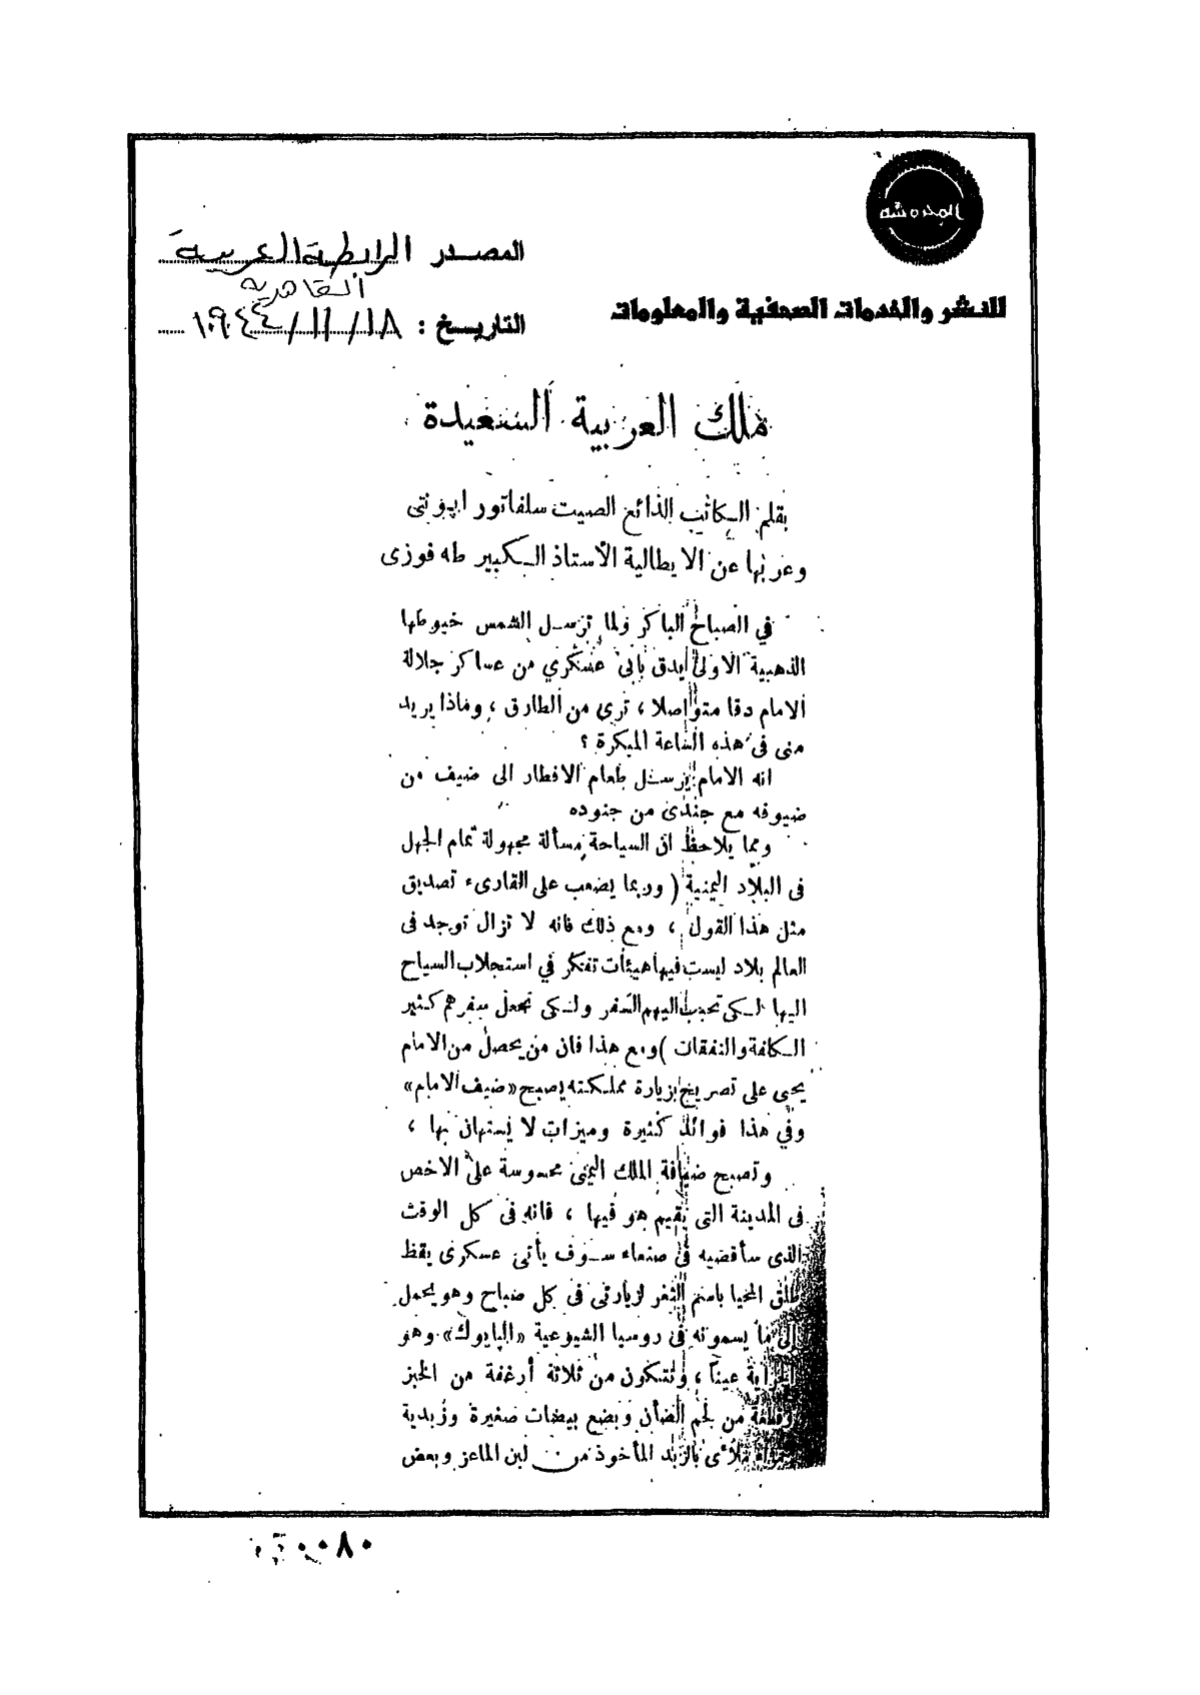 المصدر الرابطة العربية
القاهرية
للنشر والخدمات الصحفية والمعلومات
التاريخ : ١٩٤٤/١١/١٨
ملك العربية السعيدة
بقلم الكاتب الذائع الصيت سلفاتور ابونتى
وعربها عن الايطالية الأستاذ الكبير طه فوزى
في الصباح الباكر ولما ترسل الشمس خيوطها
الذهبية الاولى يدق بابى عسكري من عساكر جلالة
الامام دقا متواصلا ، ترى من الطارق ، وماذا يريد
منى فى هذه الساعة المبكرة ؟
انه الامام يرسل طعام الافطار الى ضيف من
ضيوفه مع جندى من جنوده
ومما يلاحظ ان السياحة مسألة مجهولة تمام الجهل
فى البلاد اليمنية ( وربما يصعب على القارىء تصديق
مثل هذا القول ، ومع ذلك فانه لا تزال توجد فى
العالم بلاد ليست فيها هيئات تفكر في استجلاب السياح
اليها لكى تحبب اليهم السفر ولكى تجعل سفرهم كثير
الكلفة والنفقات ) ومع هذا فان من يحصل من الامام
يحيى على تصريح بزيارة مملكته يصبح «ضيف الامام»
وفي هذا فوائد كثيرة وميزات لا يستهان بها ،
وتصبح ضيافة الملك اليمنى محسوسة على الاخص
فى المدينة التى يقيم هو فيها ، فانه فى كل الوقت
الذى سأقضيه فى صنعاء سوف يأتى عسكرى يقظ
طلق المحيا باسم الثغر لزيارتى فى كل صباح وهو يحمل
إلى ما يسمونه فى روسيا الشيوعية «البايوك» وهو
الجراية عينا ، وتتكون من ثلاثة أرغفة من الخبز
وقطعة من لحم الضأن وبضع بيضات صغيرة وزبدية
ملأى بالزبد المأخوذ من لبن الماعز وبعض